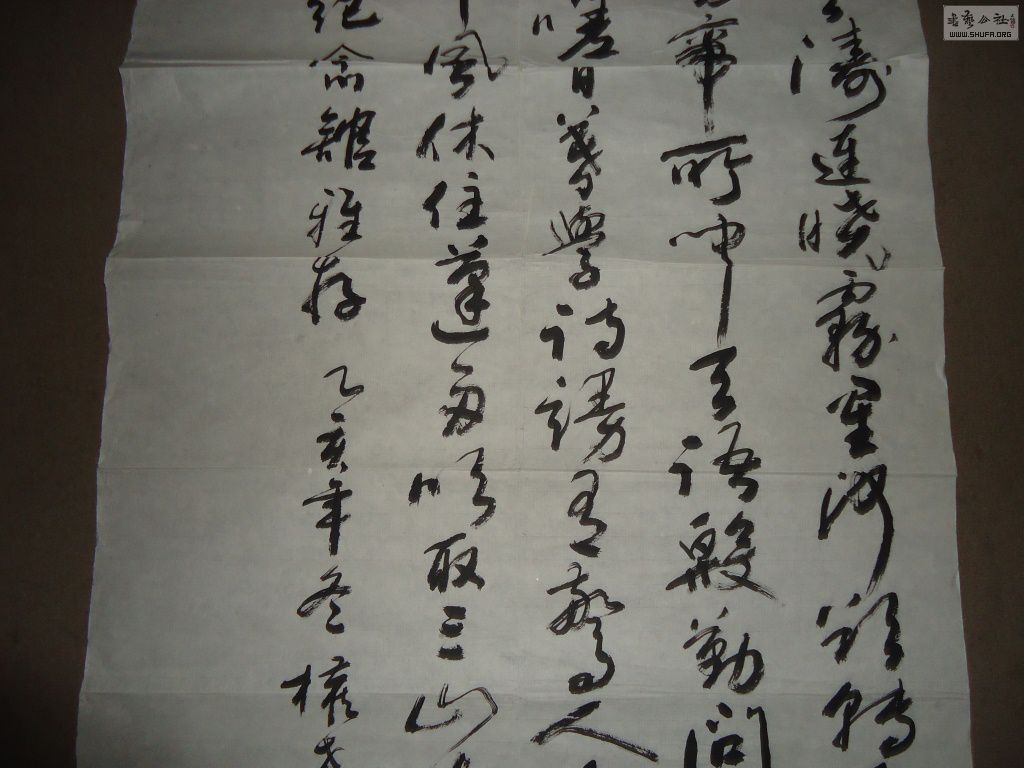 濤連曉霧星河欲轉
帝所聞天語殷勤問
嗟日暮學詩謾有驚人
風休住蓬舟吹取三山
紀念館雅存 乙亥年冬
書藝公社
WWW.SHUFA.ORG